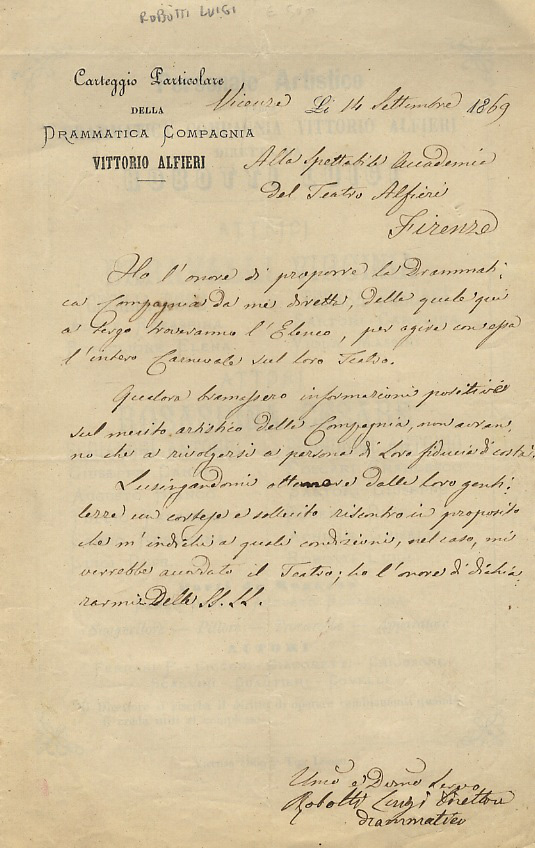 ROBOTTI LUIGI
Carteggio Particolare
DELLA
DRAMMATICA COMPAGNIA
VITTORIO ALFIERI
Vicenza Li 14 Settembre 1869
Alla Spettabile Accademia
del Teatro Alfieri
Firenze
Ho l'onore di proporre la Drammati-
ca Compagnia da me diretta, della quale qui
a tergo troveranno l'Elenco, per agire con essa
l'intero Carnevale sul loro Teatro.
Qualora bramassero informazioni positive
sul merito artistico della Compagnia, non avran-
no che a rivolgersi a persona di Loro fiducia di costà.
Lusingandomi ottenere dalle loro genti-
lezze un cortese e sollecito riscontro in proposito
che m'indichi a quali condizioni, nel caso, mi
verrebbe accordato il Teatro; ho l'onore di dichia-
rarmi Delle SS. LL.
Umo e Devmo Servo
Robotti Luigi Direttore
Drammatico